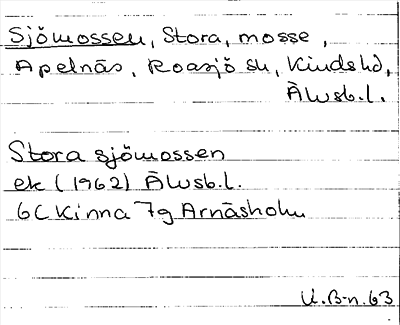 Sjömossen, Stora, mosse,
Apelnäs, Roasjö sn, Kinds hd,
Älvsb. l.
Stora sjömossen
ek (1962) Älvsb. l.
6C Kinna 7g Arnäsholm
U. B-n. 63